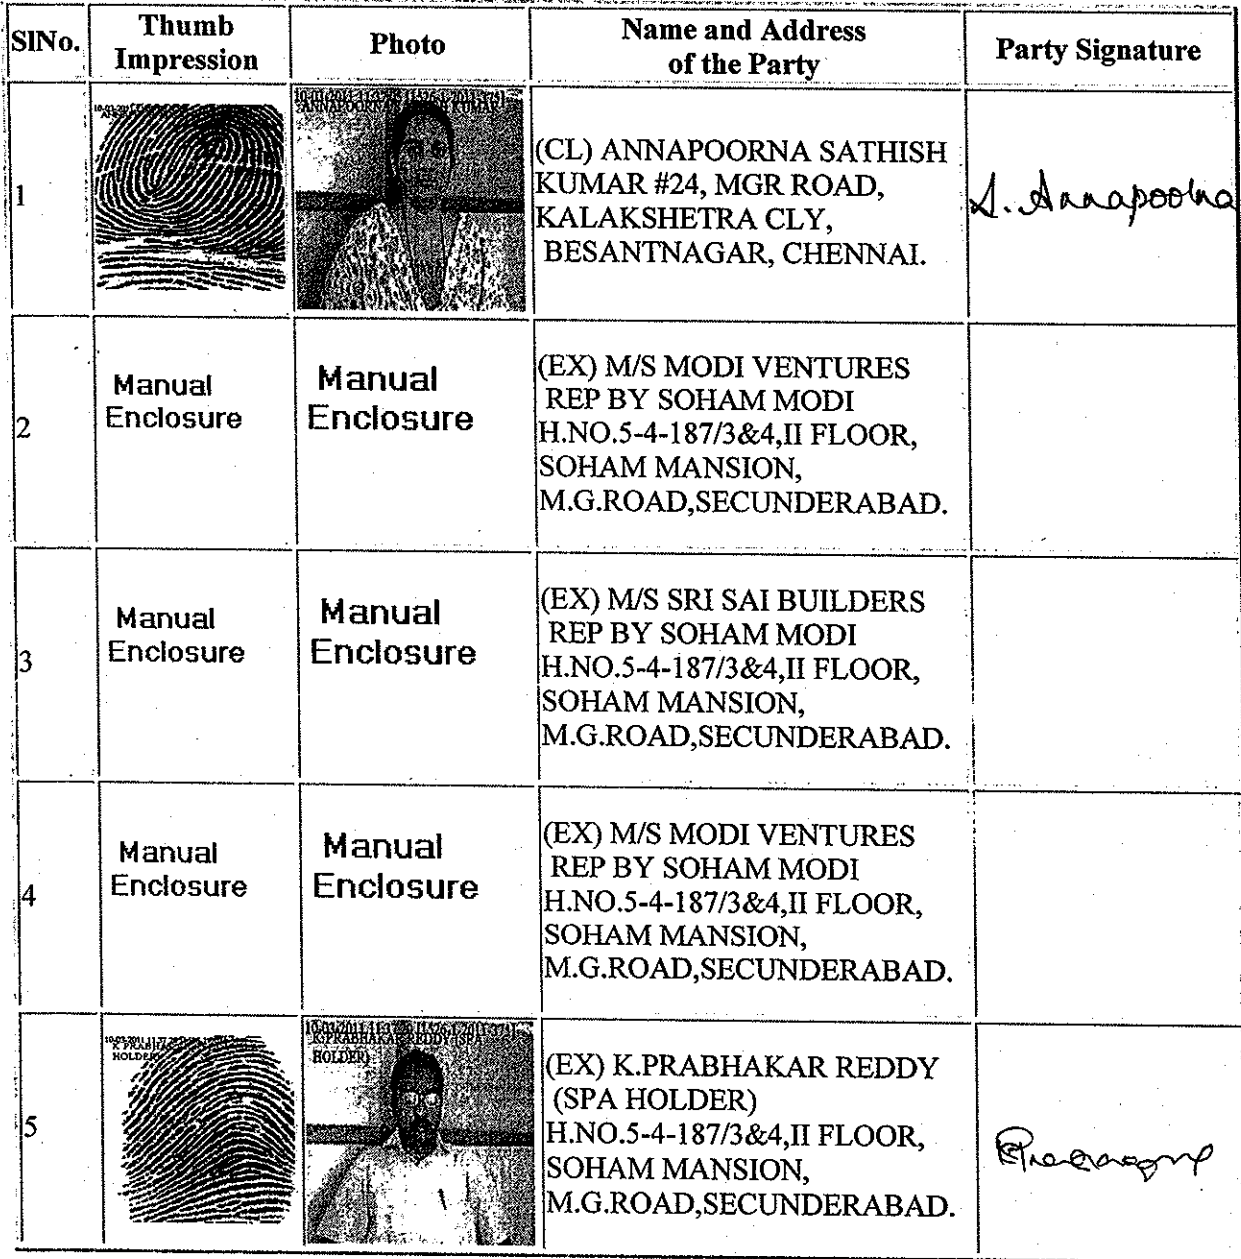 SlNo.
Thumb
Impression
Photo
Name and Address
of the Party
Party Signature
1
(CL) ANNAPOORNA SATHISH
KUMAR #24, MGR ROAD,
KALAKSHETRA CLY,
BESANTNAGAR, CHENNAI.
S. Annapoorna
2
Manual
Enclosure
Manual
Enclosure
(EX) M/S MODI VENTURES
REP BY SOHAM MODI
H.NO.5-4-187/3&4,II FLOOR,
SOHAM MANSION,
M.G.ROAD,SECUNDERABAD.
3
Manual
Enclosure
Manual
Enclosure
(EX) M/S SRI SAI BUILDERS
REP BY SOHAM MODI
H.NO.5-4-187/3&4,II FLOOR,
SOHAM MANSION,
M.G.ROAD,SECUNDERABAD.
4
Manual
Enclosure
Manual
Enclosure
(EX) M/S MODI VENTURES
REP BY SOHAM MODI
H.NO.5-4-187/3&4,II FLOOR,
SOHAM MANSION,
M.G.ROAD,SECUNDERABAD.
5
HOLDER)
K.PRABHAKAR REDDY (SPA
HOLDER)
(EX) K.PRABHAKAR REDDY
(SPA HOLDER)
H.NO.5-4-187/3&4,II FLOOR,
SOHAM MANSION,
M.G.ROAD,SECUNDERABAD.